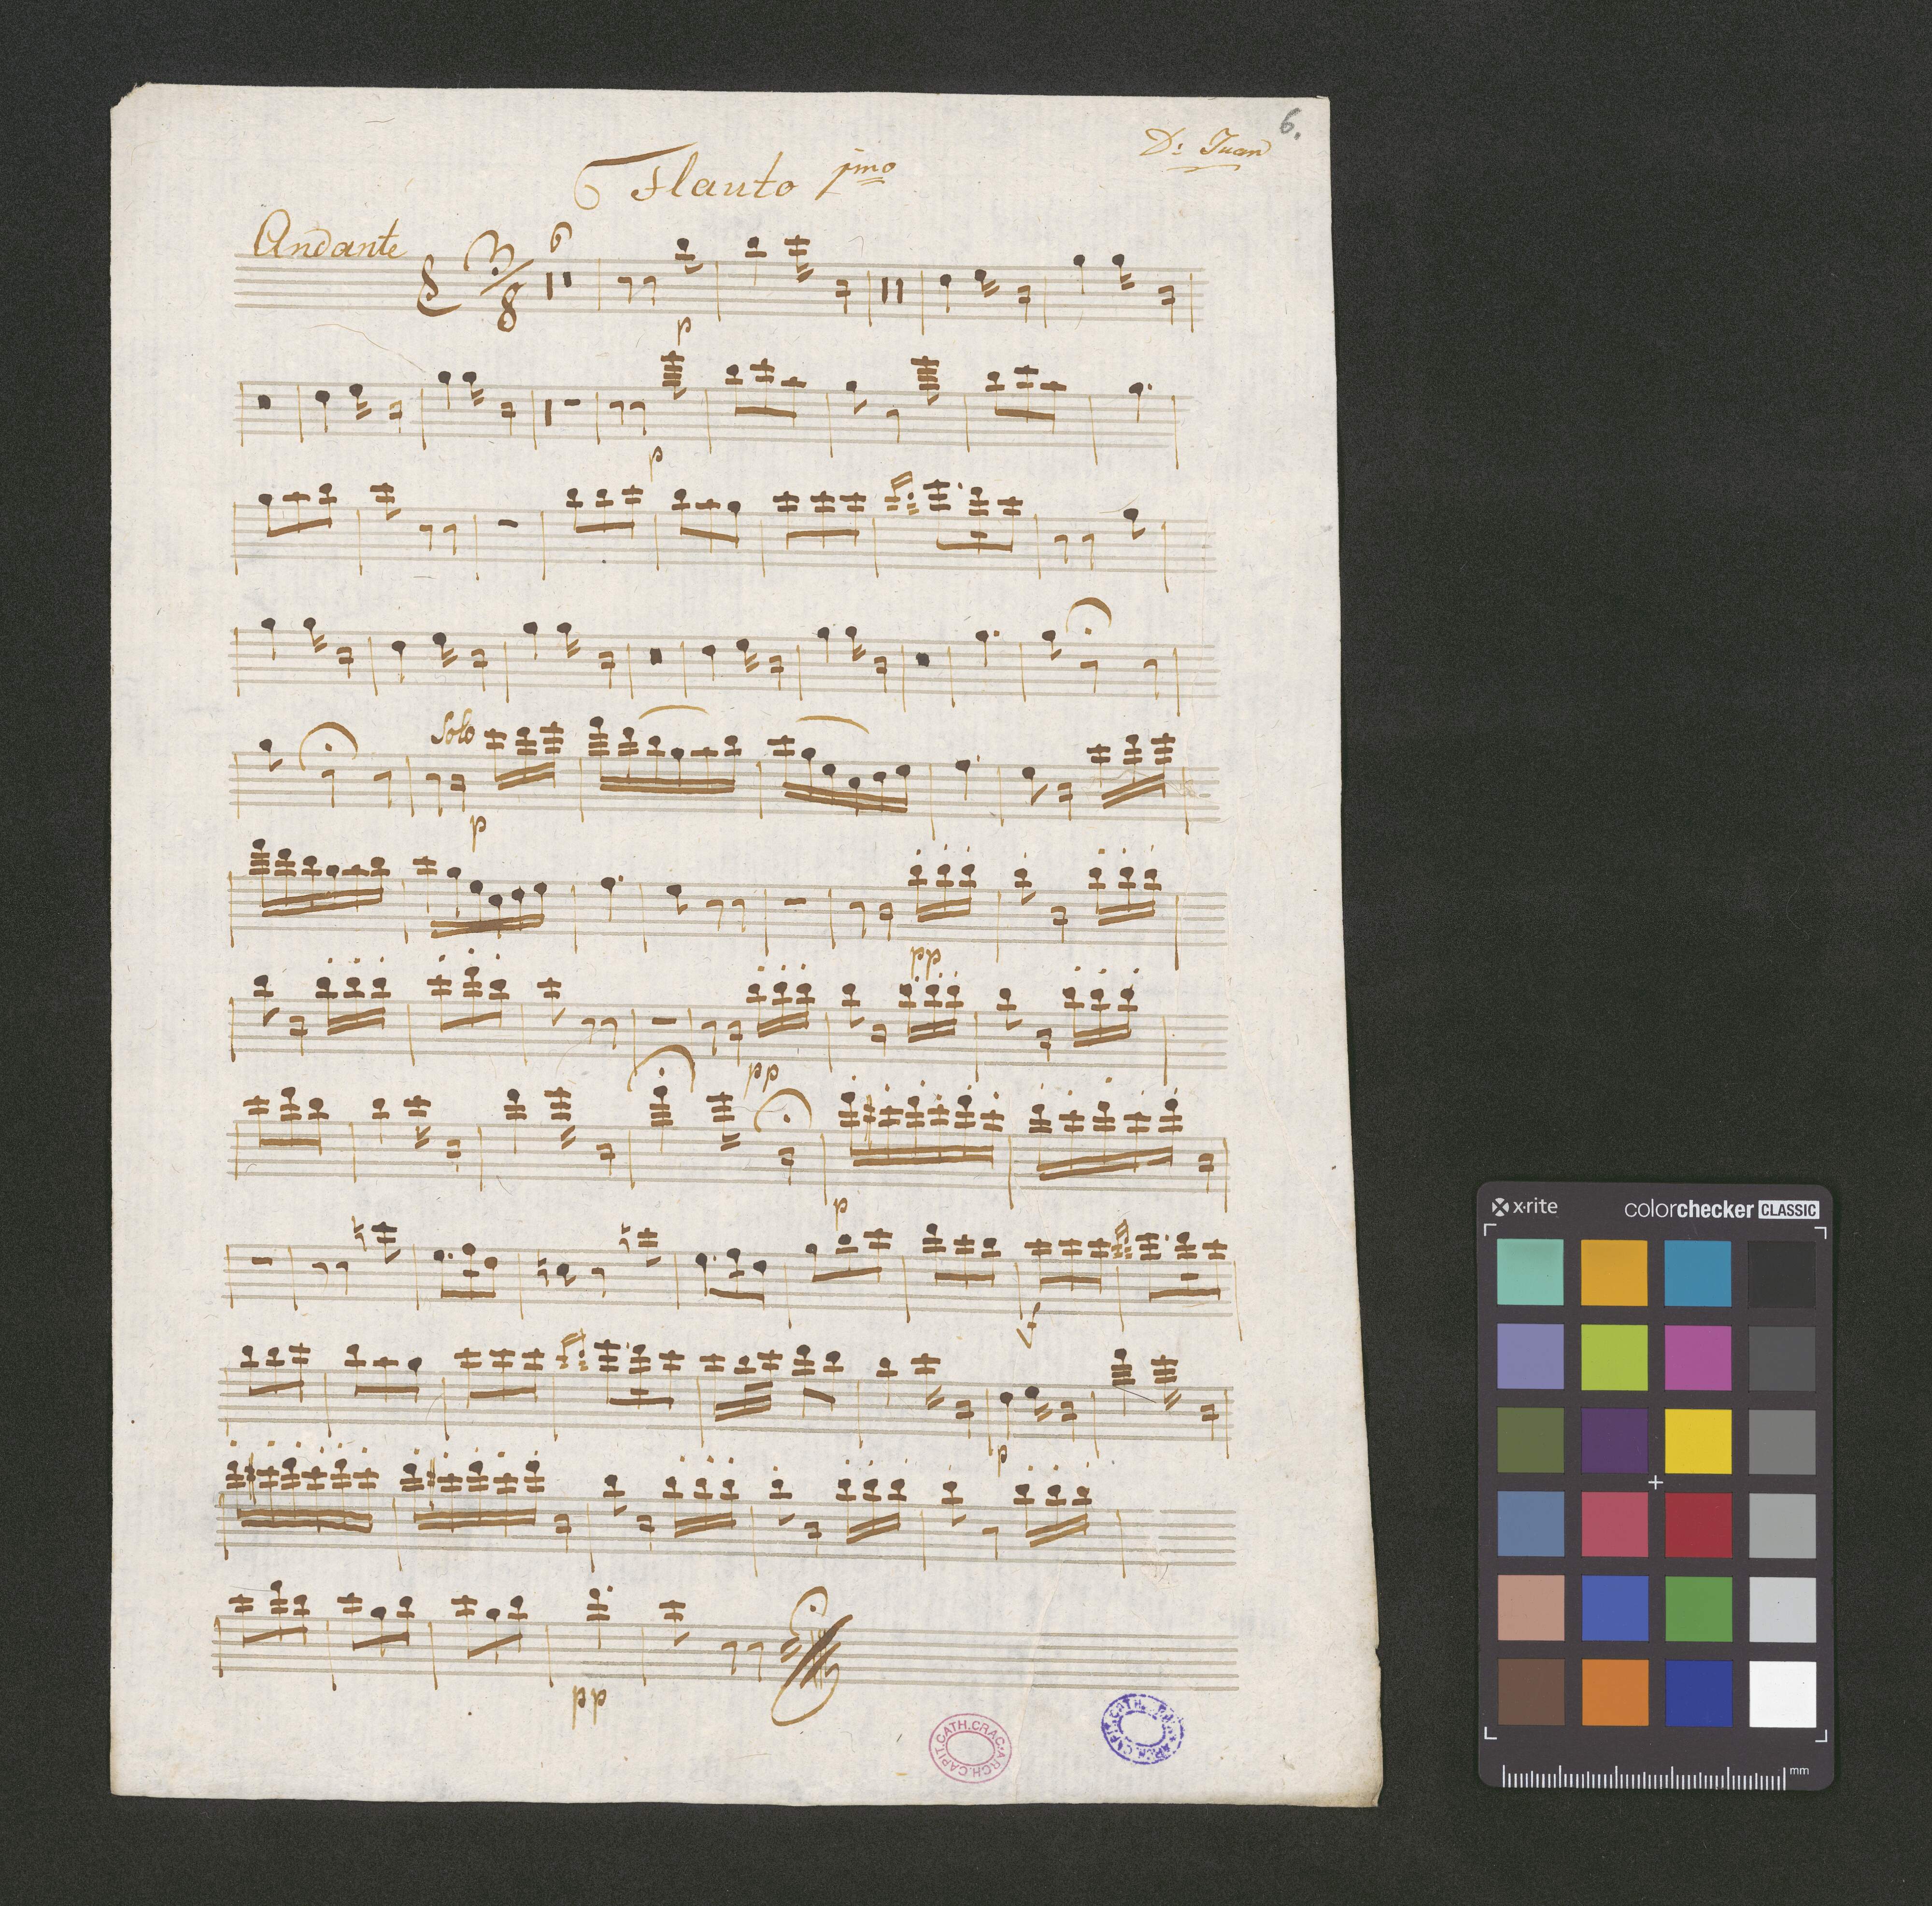 6.
D: Juan
Flauto jmo
Andante
3/8
6
p
p
Solo
p
pp
pp
p
f
p
pp
CAPIT.CATH.CRAC.ARCH.
CAPIT.CATH. ARCH.
x·rite colorchecker CLASSIC
mm